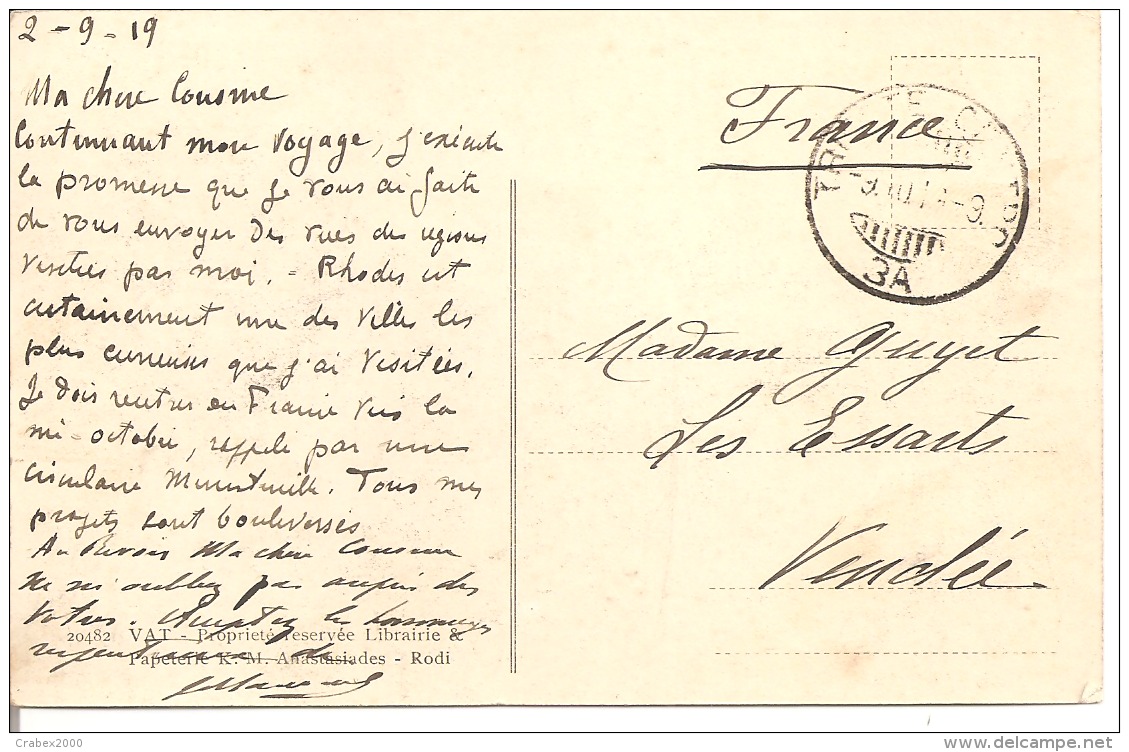 2-9-19
Ma chere Cousine
Continuant mon voyage, j'exécute
la promesse que je vous ai faite
de vous envoyer des vues des régions
visitées par moi. - Rhodes est
certainement une des villes les
plus curieuses que j'ai visitées.
Je dois rentrer en France vers la
mi-octobre, rappelé par une
circulaire Ministérielle. Tous mes
projets sont bouleversés
Au Revoir Ma chere Cousine
Ne m'oubliez pas auprès des
votres. Acceptez les hommages
respectueux de
20482 VAT - Proprieté reservée Librairie &
Papeterie K. M. Anastasiades - Rodi
France
3A
Madame Guyet
Les Essarts
Vendée
Crabex2000
www.delcampe.net